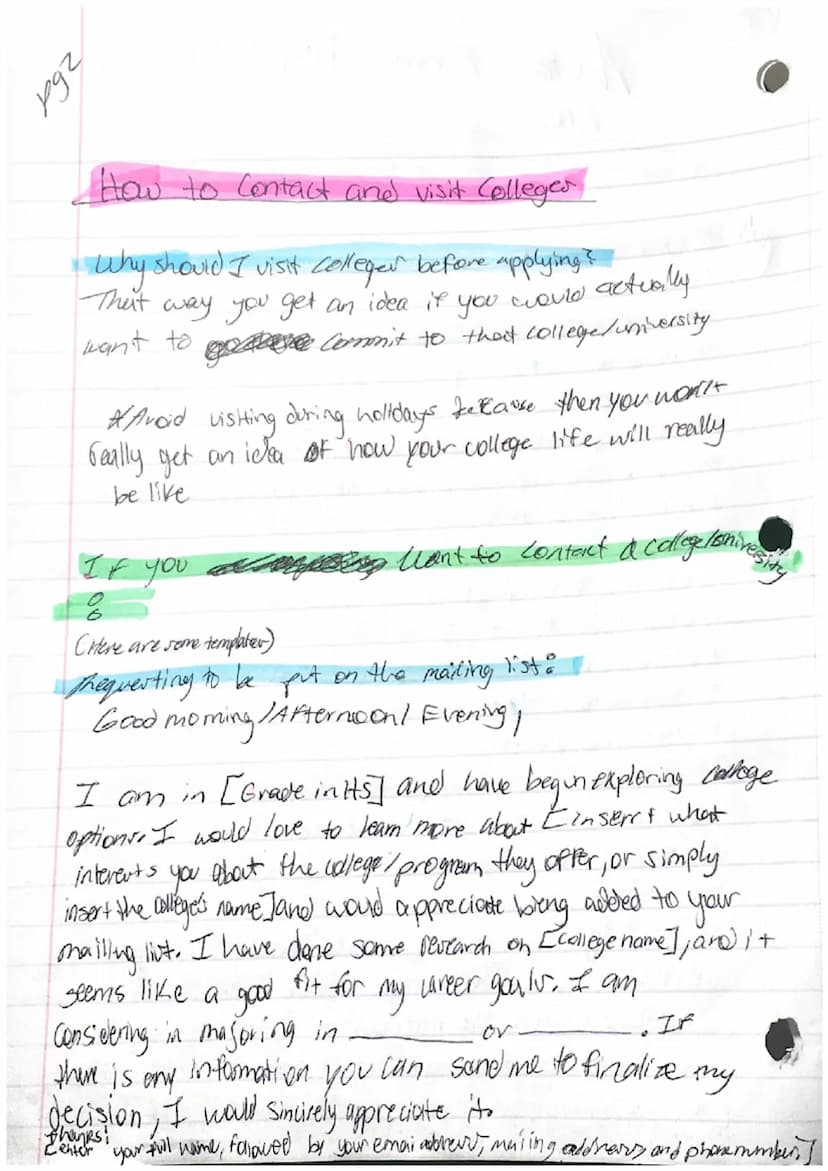 pg2
How to Contact and visit Colleges
Why should I visit colleges before applying?
That way you get an idea if you would actually
want to commit to that college/university
*Avoid visiting during holidays because then you won't
really get an idea of how your college life will really
be like
If you want to contact a college/university
:
(Here are some templates)
Requesting to be put on the mailing list:
Good morning/Afternoon/Evening,
I am in [Grade in HS] and have begun exploring college
options. I would love to learn more about [insert what
interests you about the college/program they offer, or simply
insert the college's name] and would appreciate being added to your
mailing list. I have done some research on [college name], and it
seems like a good fit for my career goals. I am
considering in majoring in ________ or ________. If
there is any information you can send me to finalize my
decision, I would sincirely appreciate it.
Thanks!
[enter your full name, followed by your email address, mailing address and phone number.]